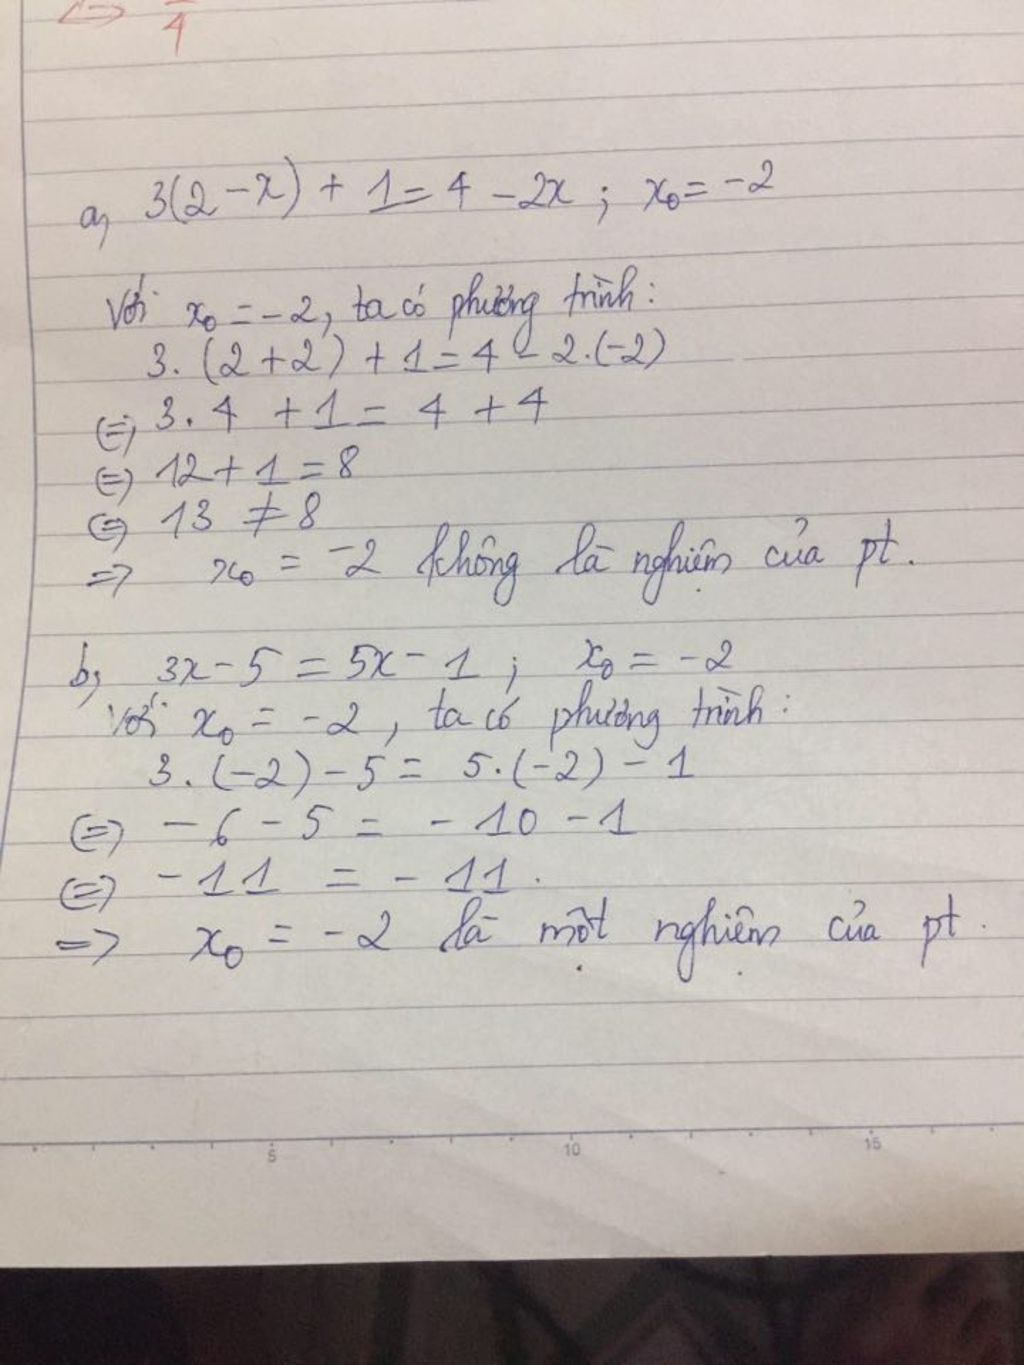 <=> 4
a, 3(2 - x) + 1 = 4 - 2x ; x₀ = -2
Với x₀ = -2, ta có phương trình:
3. (2 + 2) + 1 = 4 - 2.(-2)
(=) 3. 4 + 1 = 4 + 4
(=) 12 + 1 = 8
(=) 13 ≠ 8
=> x₀ = -2 không là nghiệm của pt.
b, 3x - 5 = 5x - 1 ; x₀ = -2
Với x₀ = -2, ta có phương trình:
3. (-2) - 5 = 5.(-2) - 1
(=) - 6 - 5 = - 10 - 1
(=) - 11 = - 11.
=> x₀ = -2 là một nghiệm của pt.
5 10 15